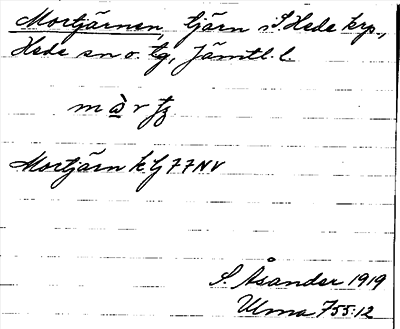 Mortjärnen, tjärn i S Hede krp.,
Hede sn o. tg, Jämtl. l.
Mortjärn k G 77 NV
S. Åsander 1919
Ulma 755:12